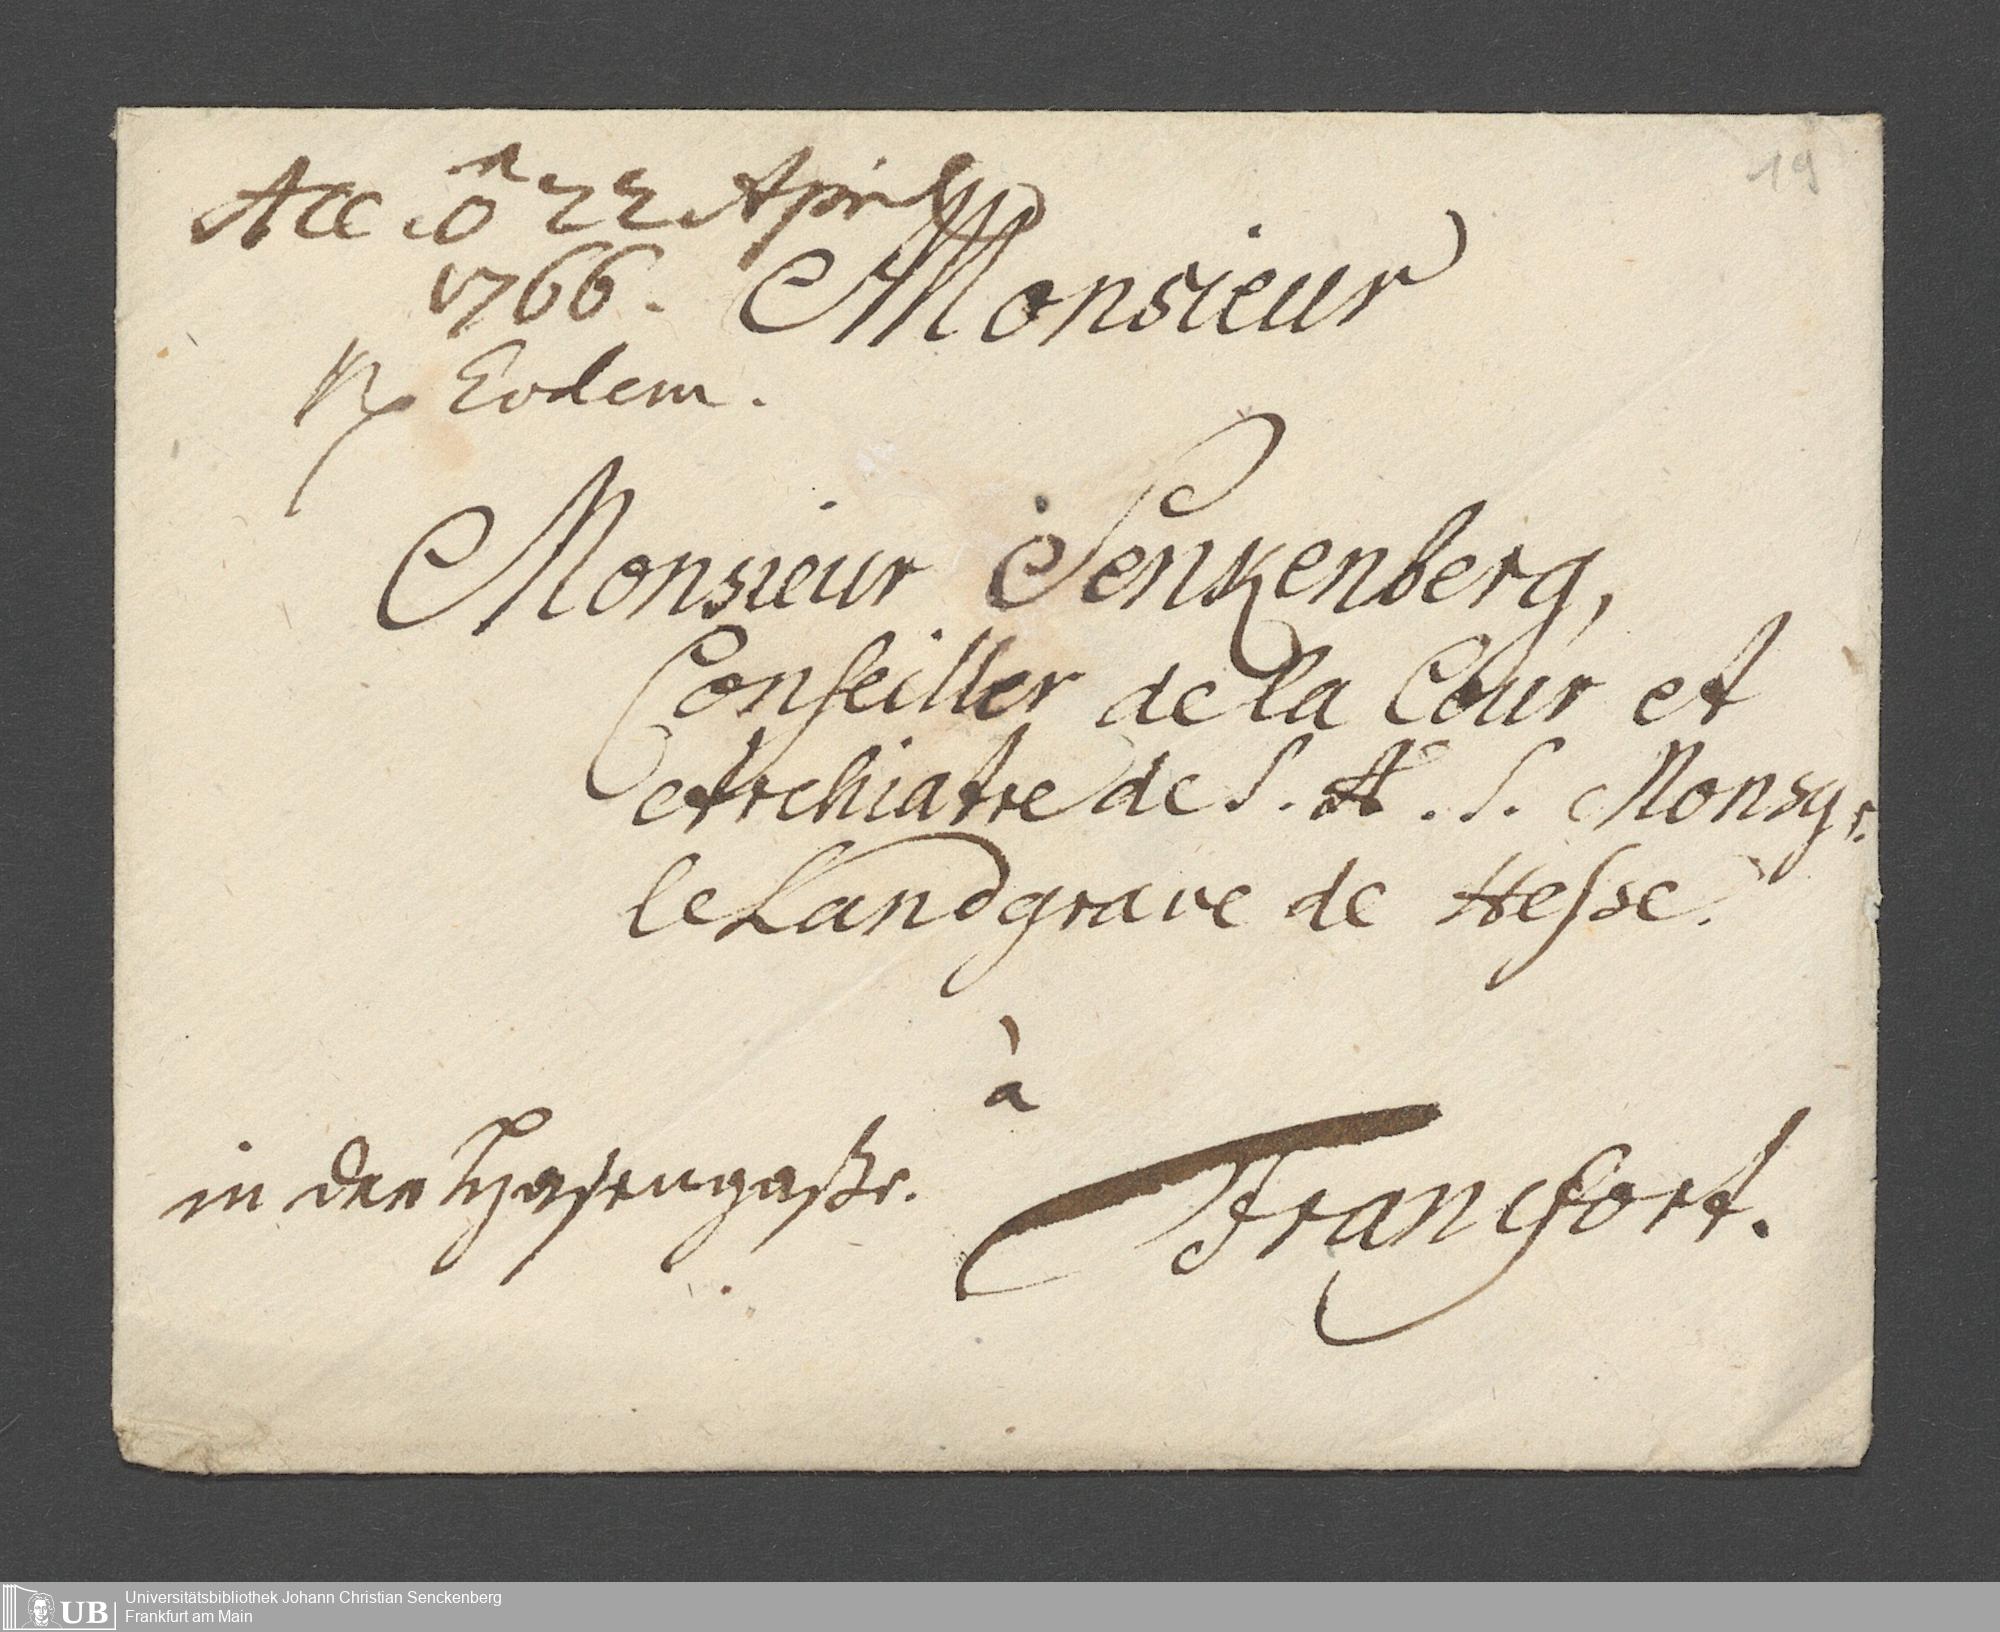 19
Acc 22 April
1766.
Eodem.
Monsieur
Monsieur Senkenberg,
Conseiller de la Cour et
Archiatre de S. A. S. Monsgr.
le Landgrave de Hesse.
à
in der Hasengaße.
Francfort.
UB
Universitätsbibliothek Johann Christian Senckenberg
Frankfurt am Main